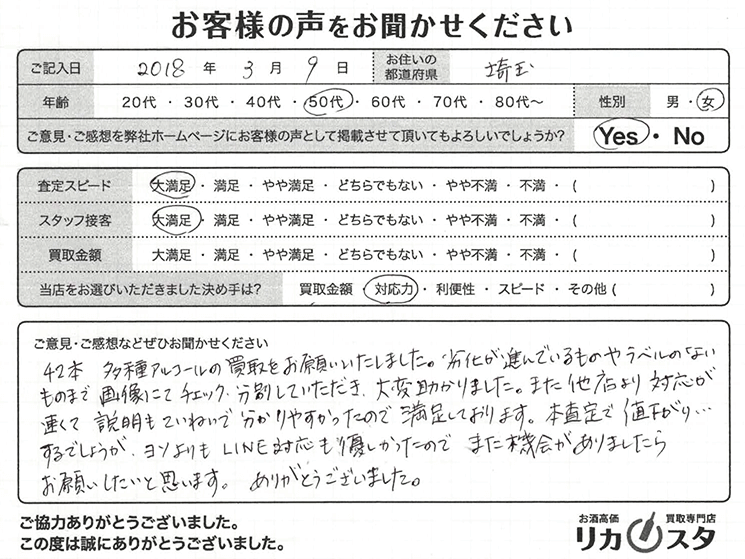 お客様の声をお聞かせください
ご記入日 2018 年 3 月 9 日 お住いの都道府県 埼玉
年齢 20代 ・ 30代 ・ 40代 ・ 50代 ・ 60代 ・ 70代 ・ 80代～ 性別 男 ・ 女
ご意見・ご感想を弊社ホームページにお客様の声として掲載させて頂いてもよろしいでしょうか? Yes ・ No
査定スピード 大満足 ・ 満足 ・ やや満足 ・ どちらでもない ・ やや不満 ・ 不満 ・ ( )
スタッフ接客 大満足 ・ 満足 ・ やや満足 ・ どちらでもない ・ やや不満 ・ 不満 ・ ( )
買取金額 大満足 ・ 満足 ・ やや満足 ・ どちらでもない ・ やや不満 ・ 不満 ・ ( )
当店をお選びいただきました決め手は? 買取金額 ・ 対応力 ・ 利便性 ・ スピード ・ その他 ( )
ご意見・ご感想などぜひお聞かせください
42本 多種アルコールの買取をお願いいたしました。劣化が進んでいるものやラベルのない
ものまで画像にてチェック、分別していただき、大変助かりました。また他店より対応が
速くて説明もていねいで分かりやすかったので満足しております。本査定で値下がり…
するでしょうが、ヨソよりもLINE対応も優しかったのでまた機会がありましたら
お願いしたいと思います。ありがとうございました。
ご協力ありがとうございました。
この度は誠にありがとうございました。
お酒高価 買取専門店
リカスタ